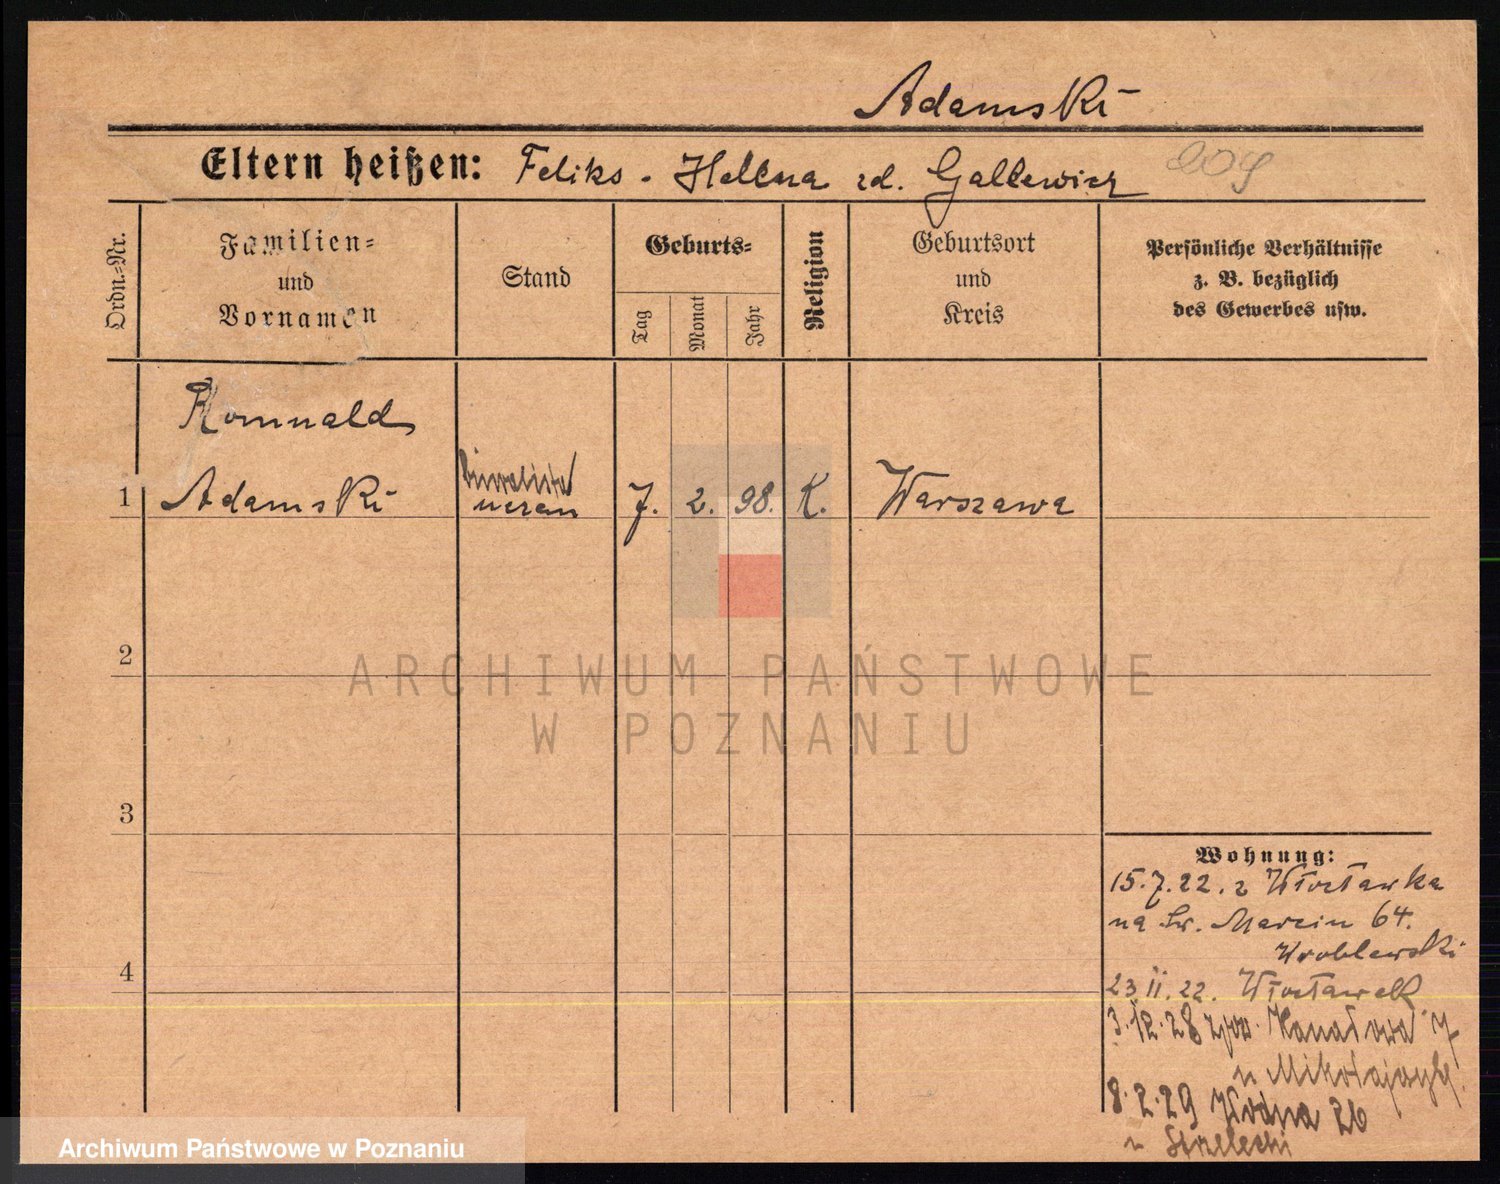 Adamski
Eltern heißen: Feliks - Hellena zd. Gallewicz 209
Ordn.-Nr.
Familien-
und
Vornamen
Stand
Geburts-
Tag
Monat
Jahr
Religion
Geburtsort
und
Kreis
Persönliche Verhältnisse
z. B. bezüglich
des Gewerbes usw.
Romuald
1 Adamski
uczeń 7. 2. 98. K. Warszawa
2
ARCHIWUM PAŃSTWOWE
W POZNANIU
3
Wohnung:
15.7.22. z Włocławka
na Św. Marcin 64.
Wroblewski
4
23 II. 22. Włocławek
3.12.28 Kanałowa 7
u Mikołajczyk
8.2.29 Wodna 26
u Strzelecki
Archiwum Państwowe w Poznaniu